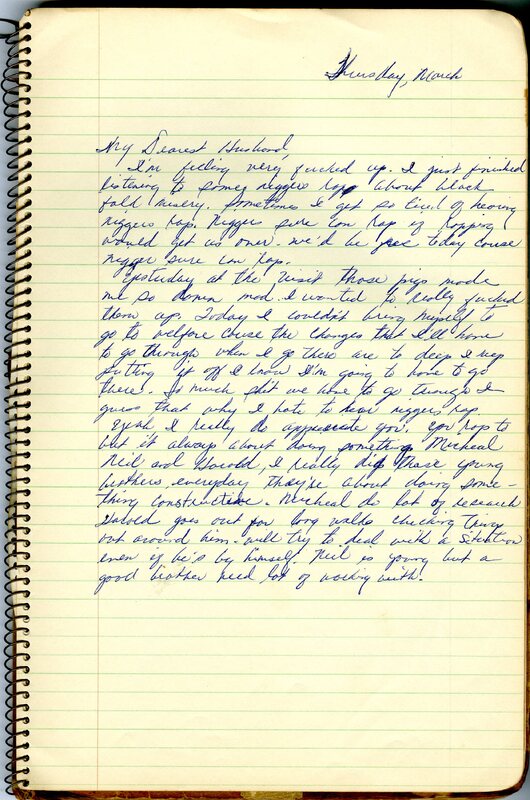 Thursday, March
My Dearest Husband,
I'm feeling very fucked up. I just finished
listening to some niggers rap about black
folk misery. Sometimes I get so tired of hearing
niggers rap. Nigger sure can rap if rapping
would get us over. we'd be free today cause
nigger sure can rap.
Yestuday at the visit those pigs made
me so damn mad. I wanted to really fucked
them up. Today I couldn't bring myself to
go to welfare cause the changes that I'll have
to go through when I go there are to deep I keep
putting it off I know I'm going to have to go
there. So much shit we have to go through I
guess that why I hate to hear niggers rap.
Yeah I really do appreciate you. You rap to
but it always about doing something Micheal
Neil and Harold, I really dig those young
brothers everyday they're about doing some-
thing constructive. Micheal do lot of research
Harold goes out for long walks checking things
out around him. will try to deal with a situation
even if he's by himself. Neil is young but a
good brother need lot of working with.